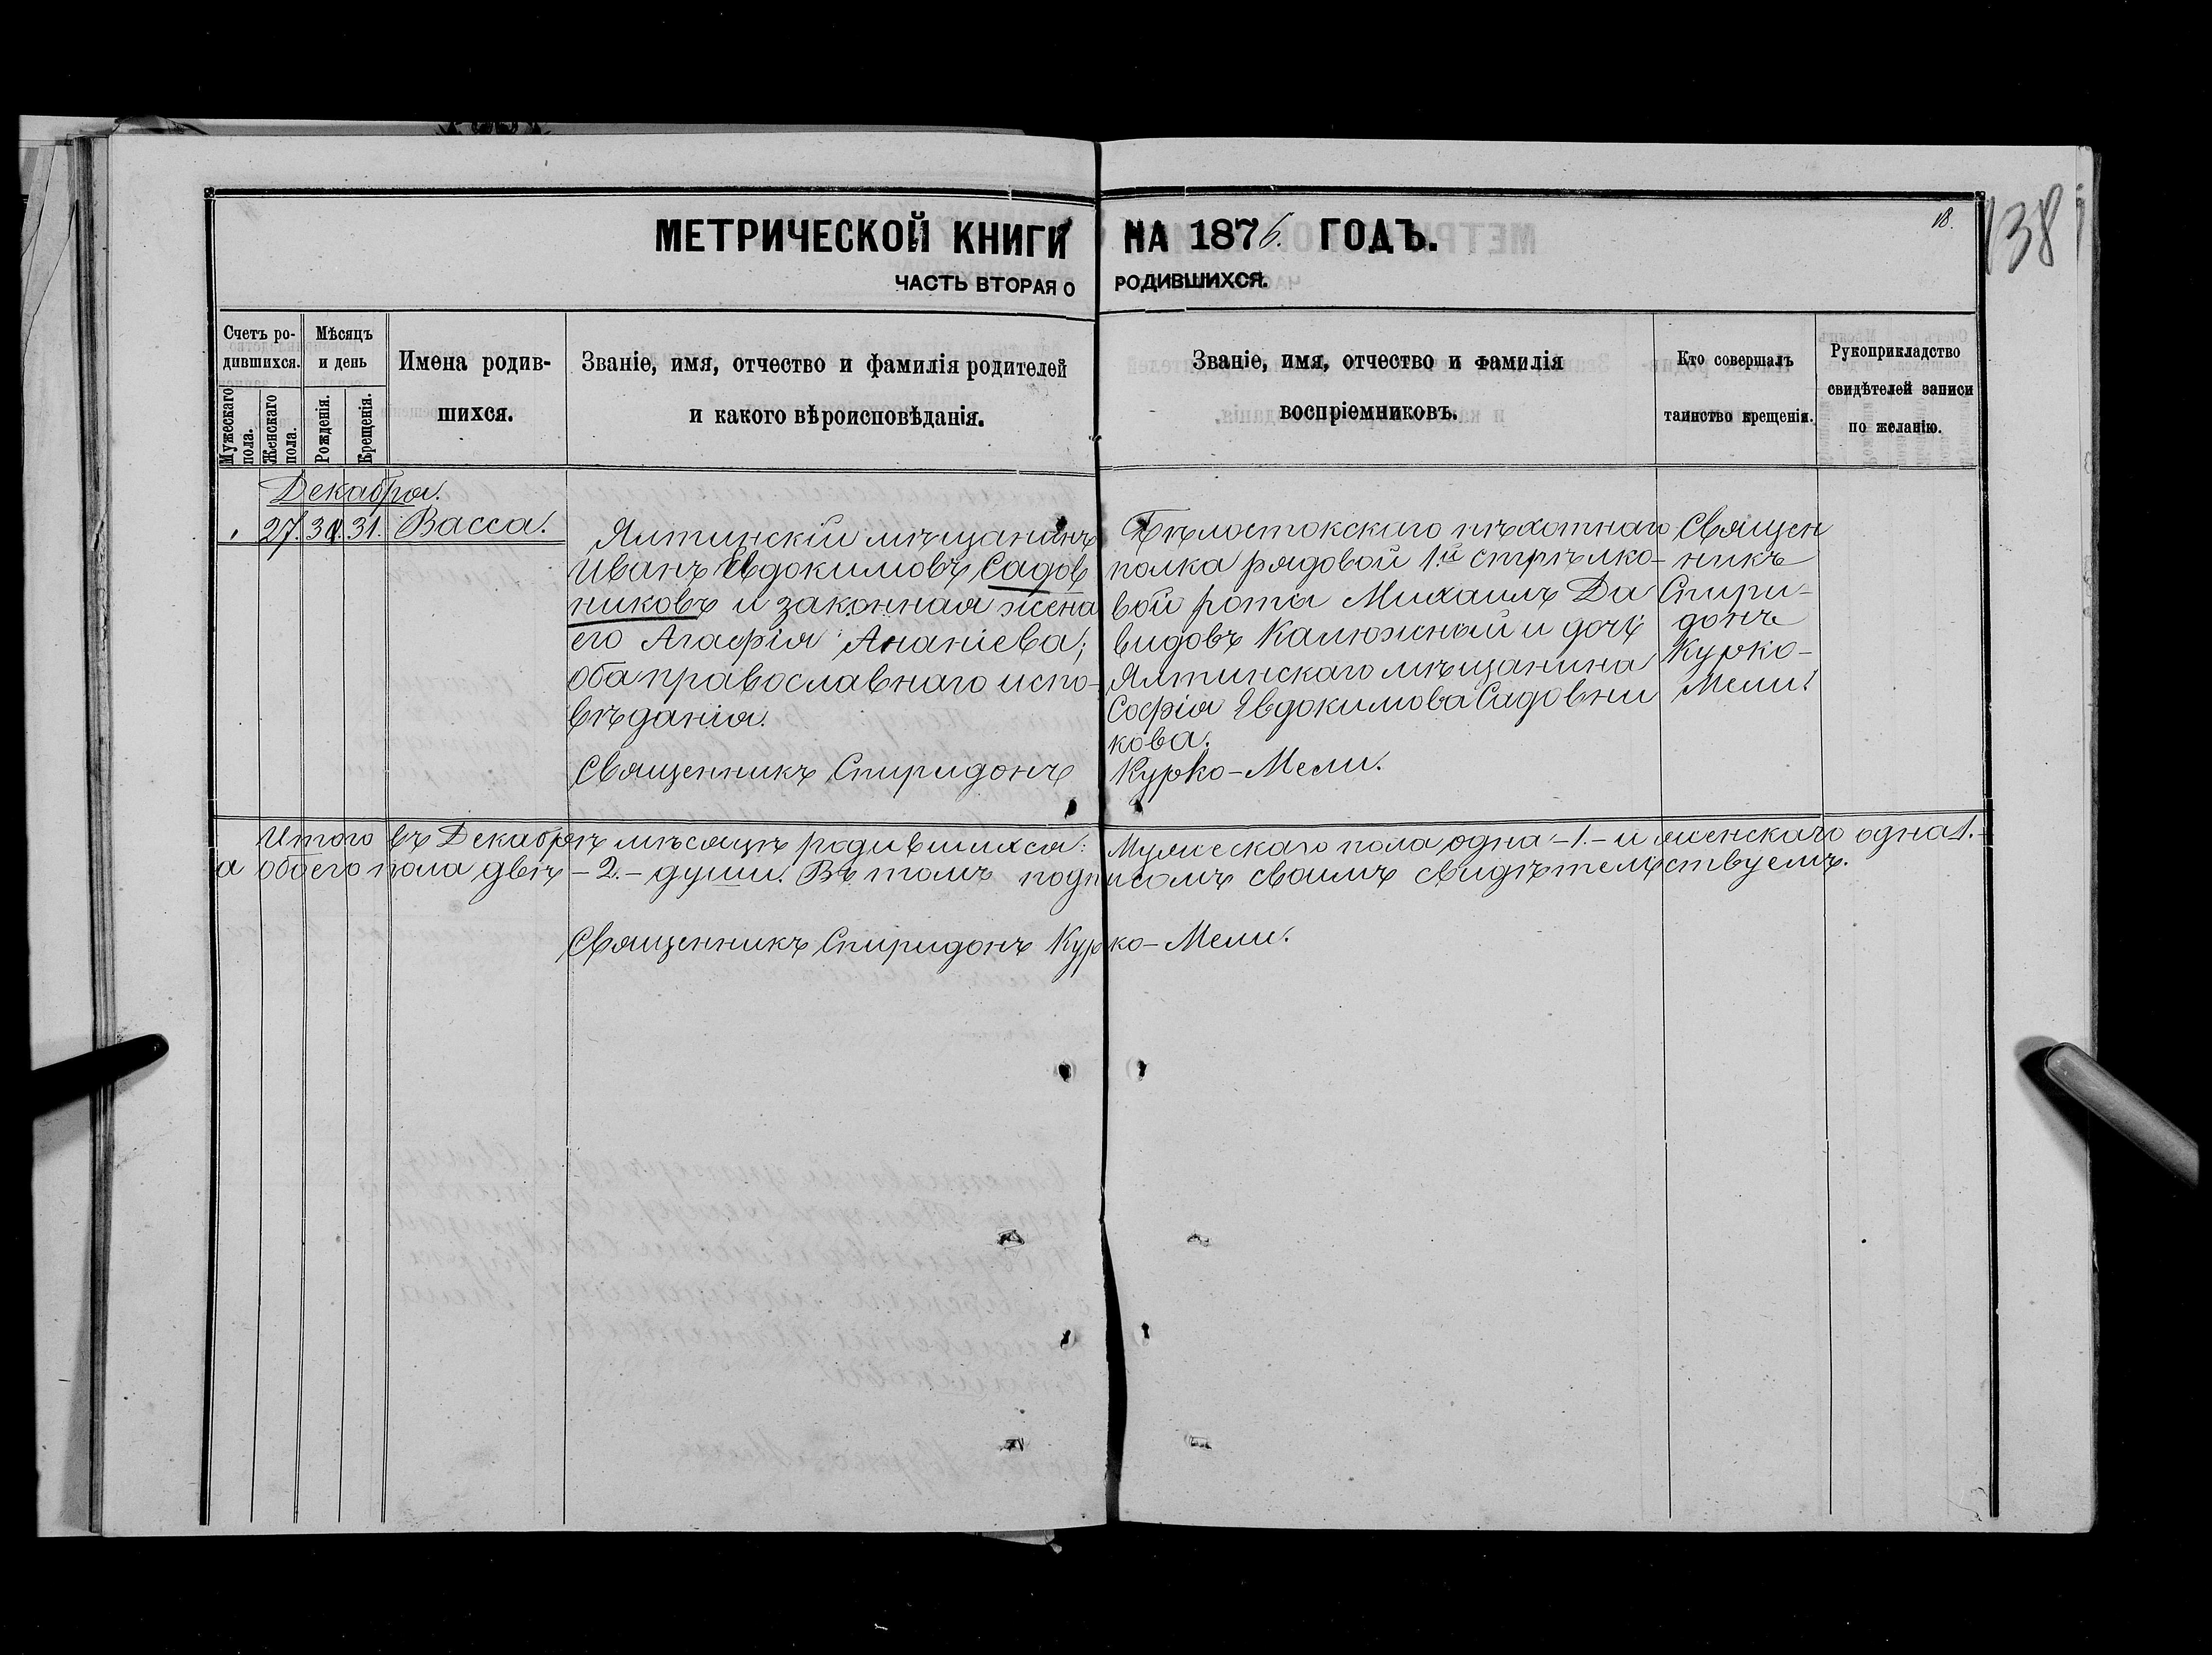 МЕТРИЧЕСКОЙ КНИГИ НА 1876. ГОДЪ.
18.
138
ЧАСТЬ ВТОРАЯ О РОДИВШИХСЯ.
Счетъ ро-
дившихся.
Мужескаго
пола.
Женскаго
пола.
Мѣсяцъ
и день
Рожденія.
Крещенія.
Имена родив-
шихся.
Званіе, имя, отчество и фамилія родителей
и какого вѣроисповѣданія.
Званіе, имя, отчество и фамилія
воспріемниковъ.
Кто совершалъ
таинство крещенія.
Рукоприкладство
свидѣтелей записи
по желанію.
Декабря.
27. 31. Васса.
Ялтинскій мѣщанинъ
Иванъ Евдокимовъ Садов
никовъ и законная жена
его Агафія Ананіева;
оба православнаго испо-
вѣданія.
Бѣлостокскаго пѣхотнаго
полка рядовой 1.й стрѣлко-
вой роты Михаилъ Да
видовъ Калюжный и дочь
Ялтинскаго мѣщанина
Софія Явдокимова Садовни
кова.
Священ
никъ
Спири-
донъ
Курко-
Мели.
Священникъ Спиридонъ Курко-Мели.
Итого въ Декабрѣ мѣсяцѣ родившихся: Мужескаго пола одна -1.- и женскаго одна 1.-
а обоего пола двѣ -2.- души. Въ томъ подписомъ своимъ свидѣтельствуемъ.
Священникъ Спиридонъ Курко-Мели.